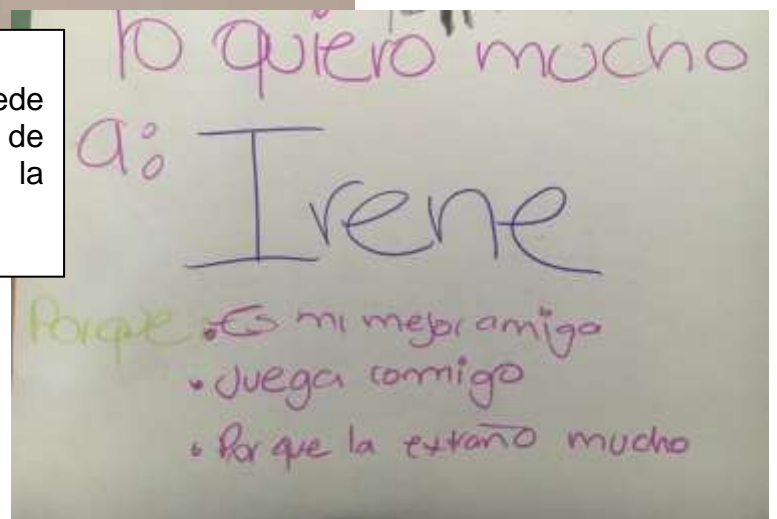 ede
de
la
Yo quiero mucho
a:
Irene
Porque: • Es mi mejor amiga
• Juega conmigo
• Por que la extraño mucho